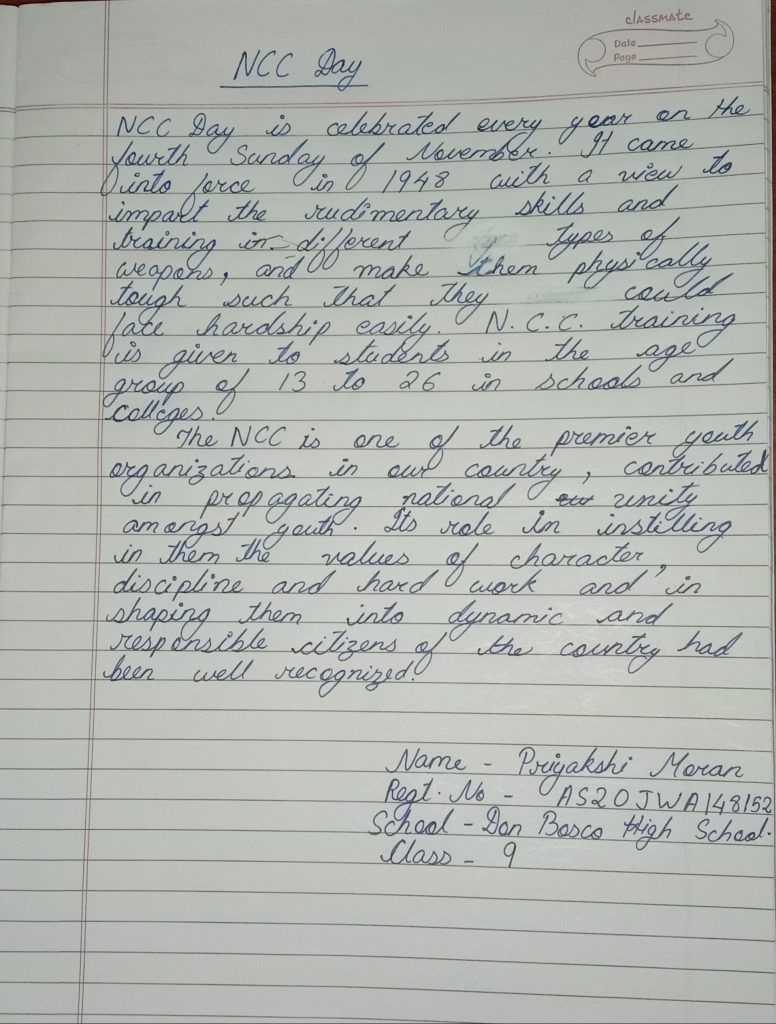 classmate
Date
Page
NCC Day
NCC Day is celebrated every year on the
fourth Sunday of November. It came
into force in 1948 with a view to
impart the rudimentary skills and
training in different types of
weapons, and make them physically
tough such that they could
face hardship easily. N.C.C. training
is given to students in the age
group of 13 to 26 in schools and
colleges.
The NCC is one of the premier youth
organizations in our country, contributed
in propagating national unity
amongst youth. Its role in instilling
in them the values of character,
discipline and hard work and in
shaping them into dynamic and
responsible citizens of the country had
been well recognized.
Name - Priyakshi Moran
Regt. No - AS20JWA148152
School - Don Bosco High School.
Class - 9